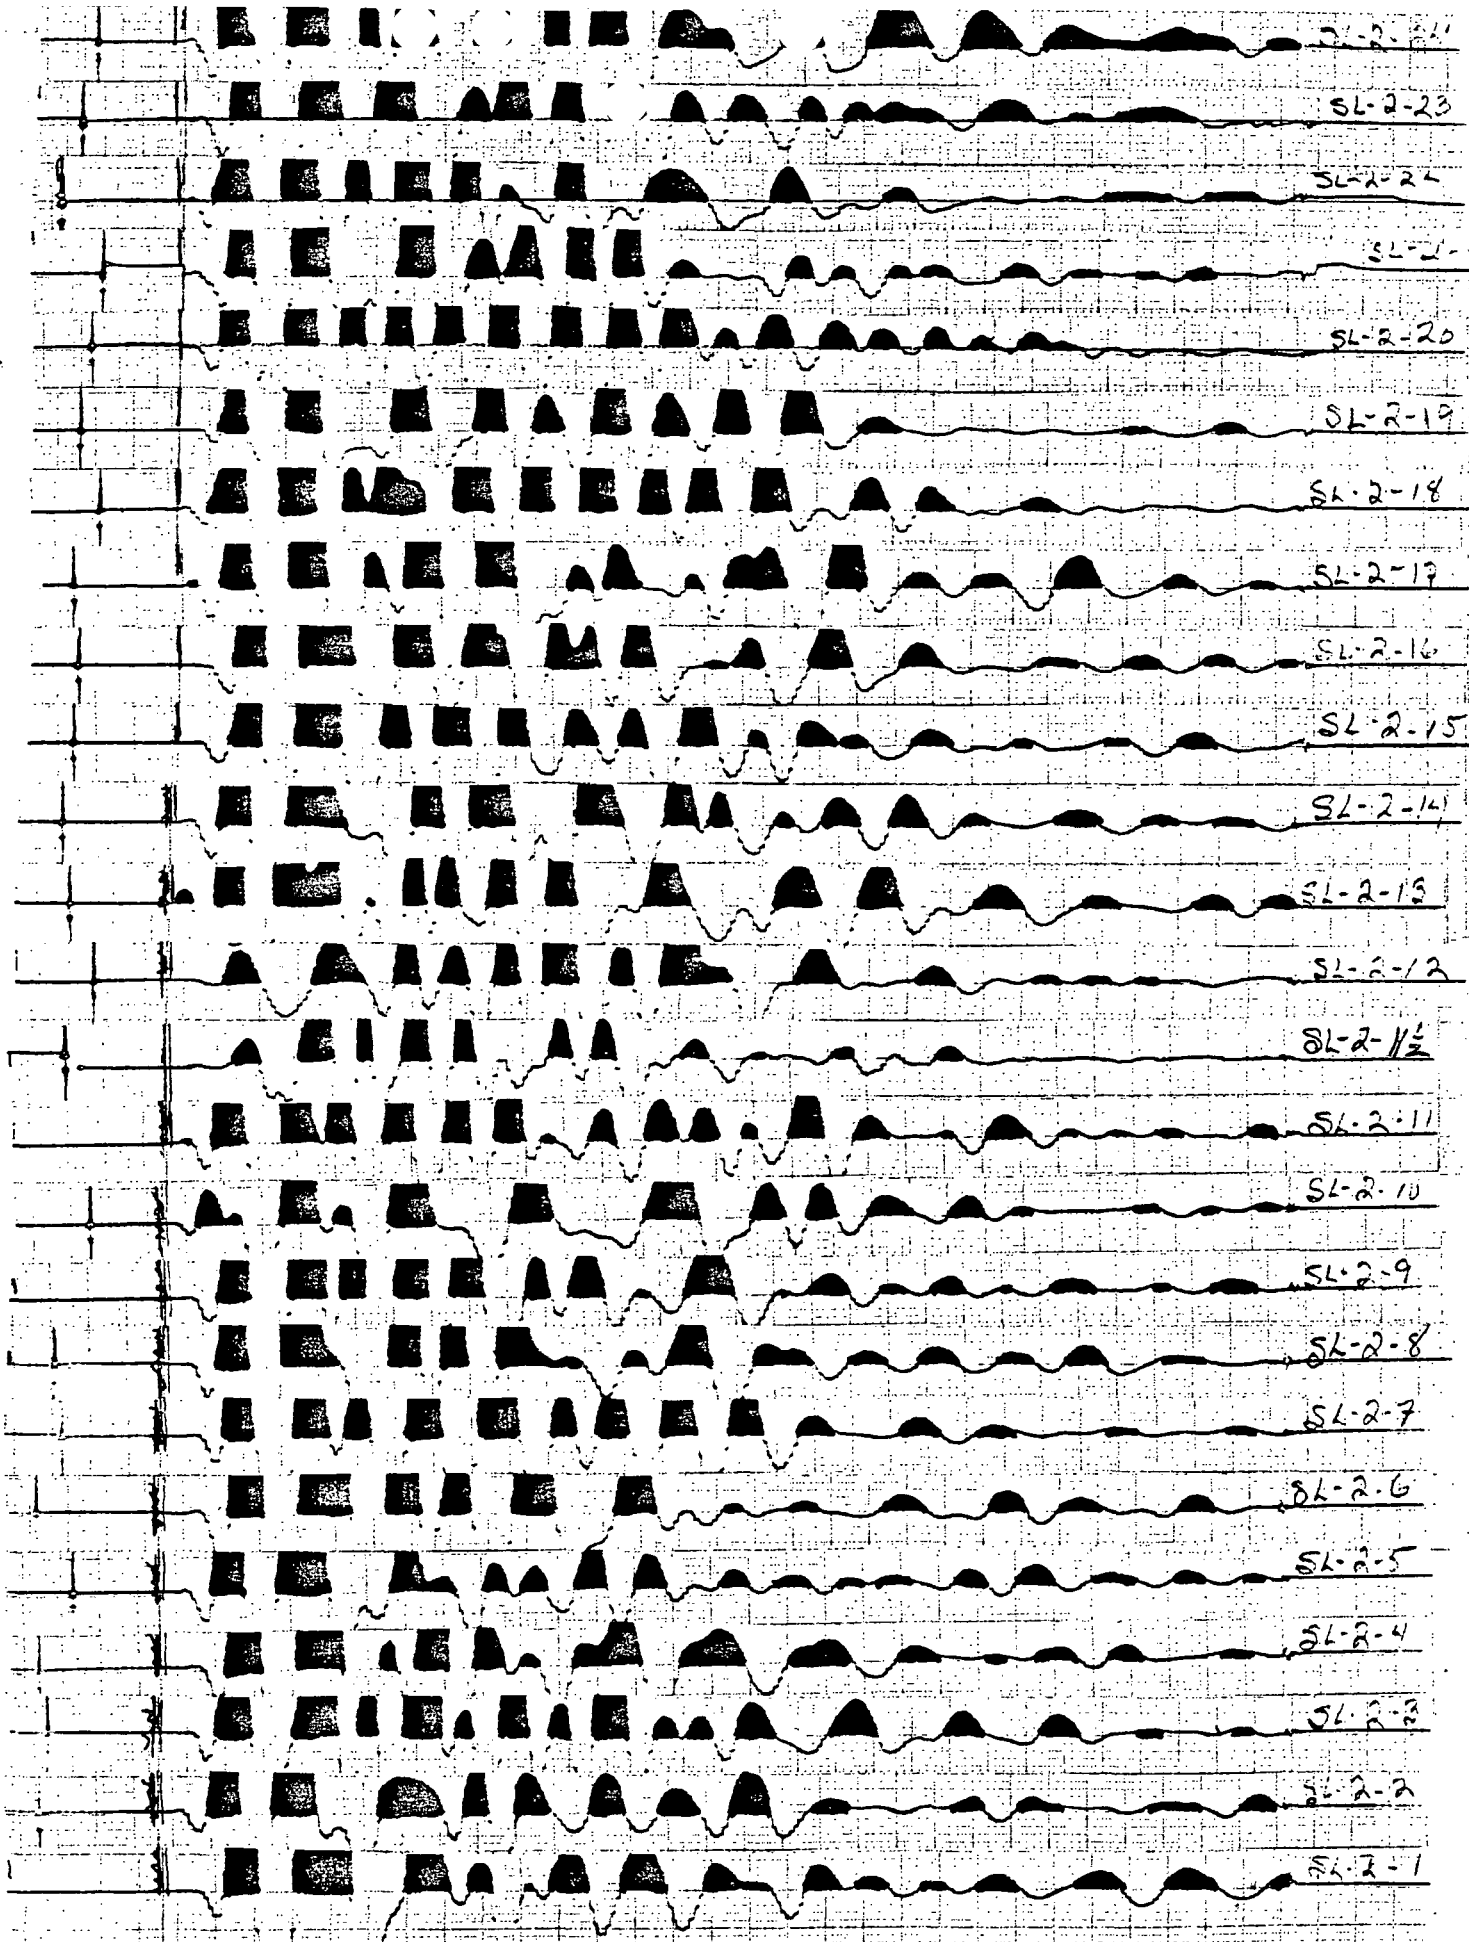 SL-2-23
SL-2-22
SL-2-
SL-2-20
SL-2-19
SL-2-18
SL-2-17
SL-2-16
SL-2-15
SL-2-14
SL-2-13
SL-2-12
SL-2-11½
SL-2-11
SL-2-10
SL-2-9
SL-2-8
SL-2-7
SL-2-6
SL-2-5
SL-2-4
SL-2-3
SL-2-2
SL-2-1